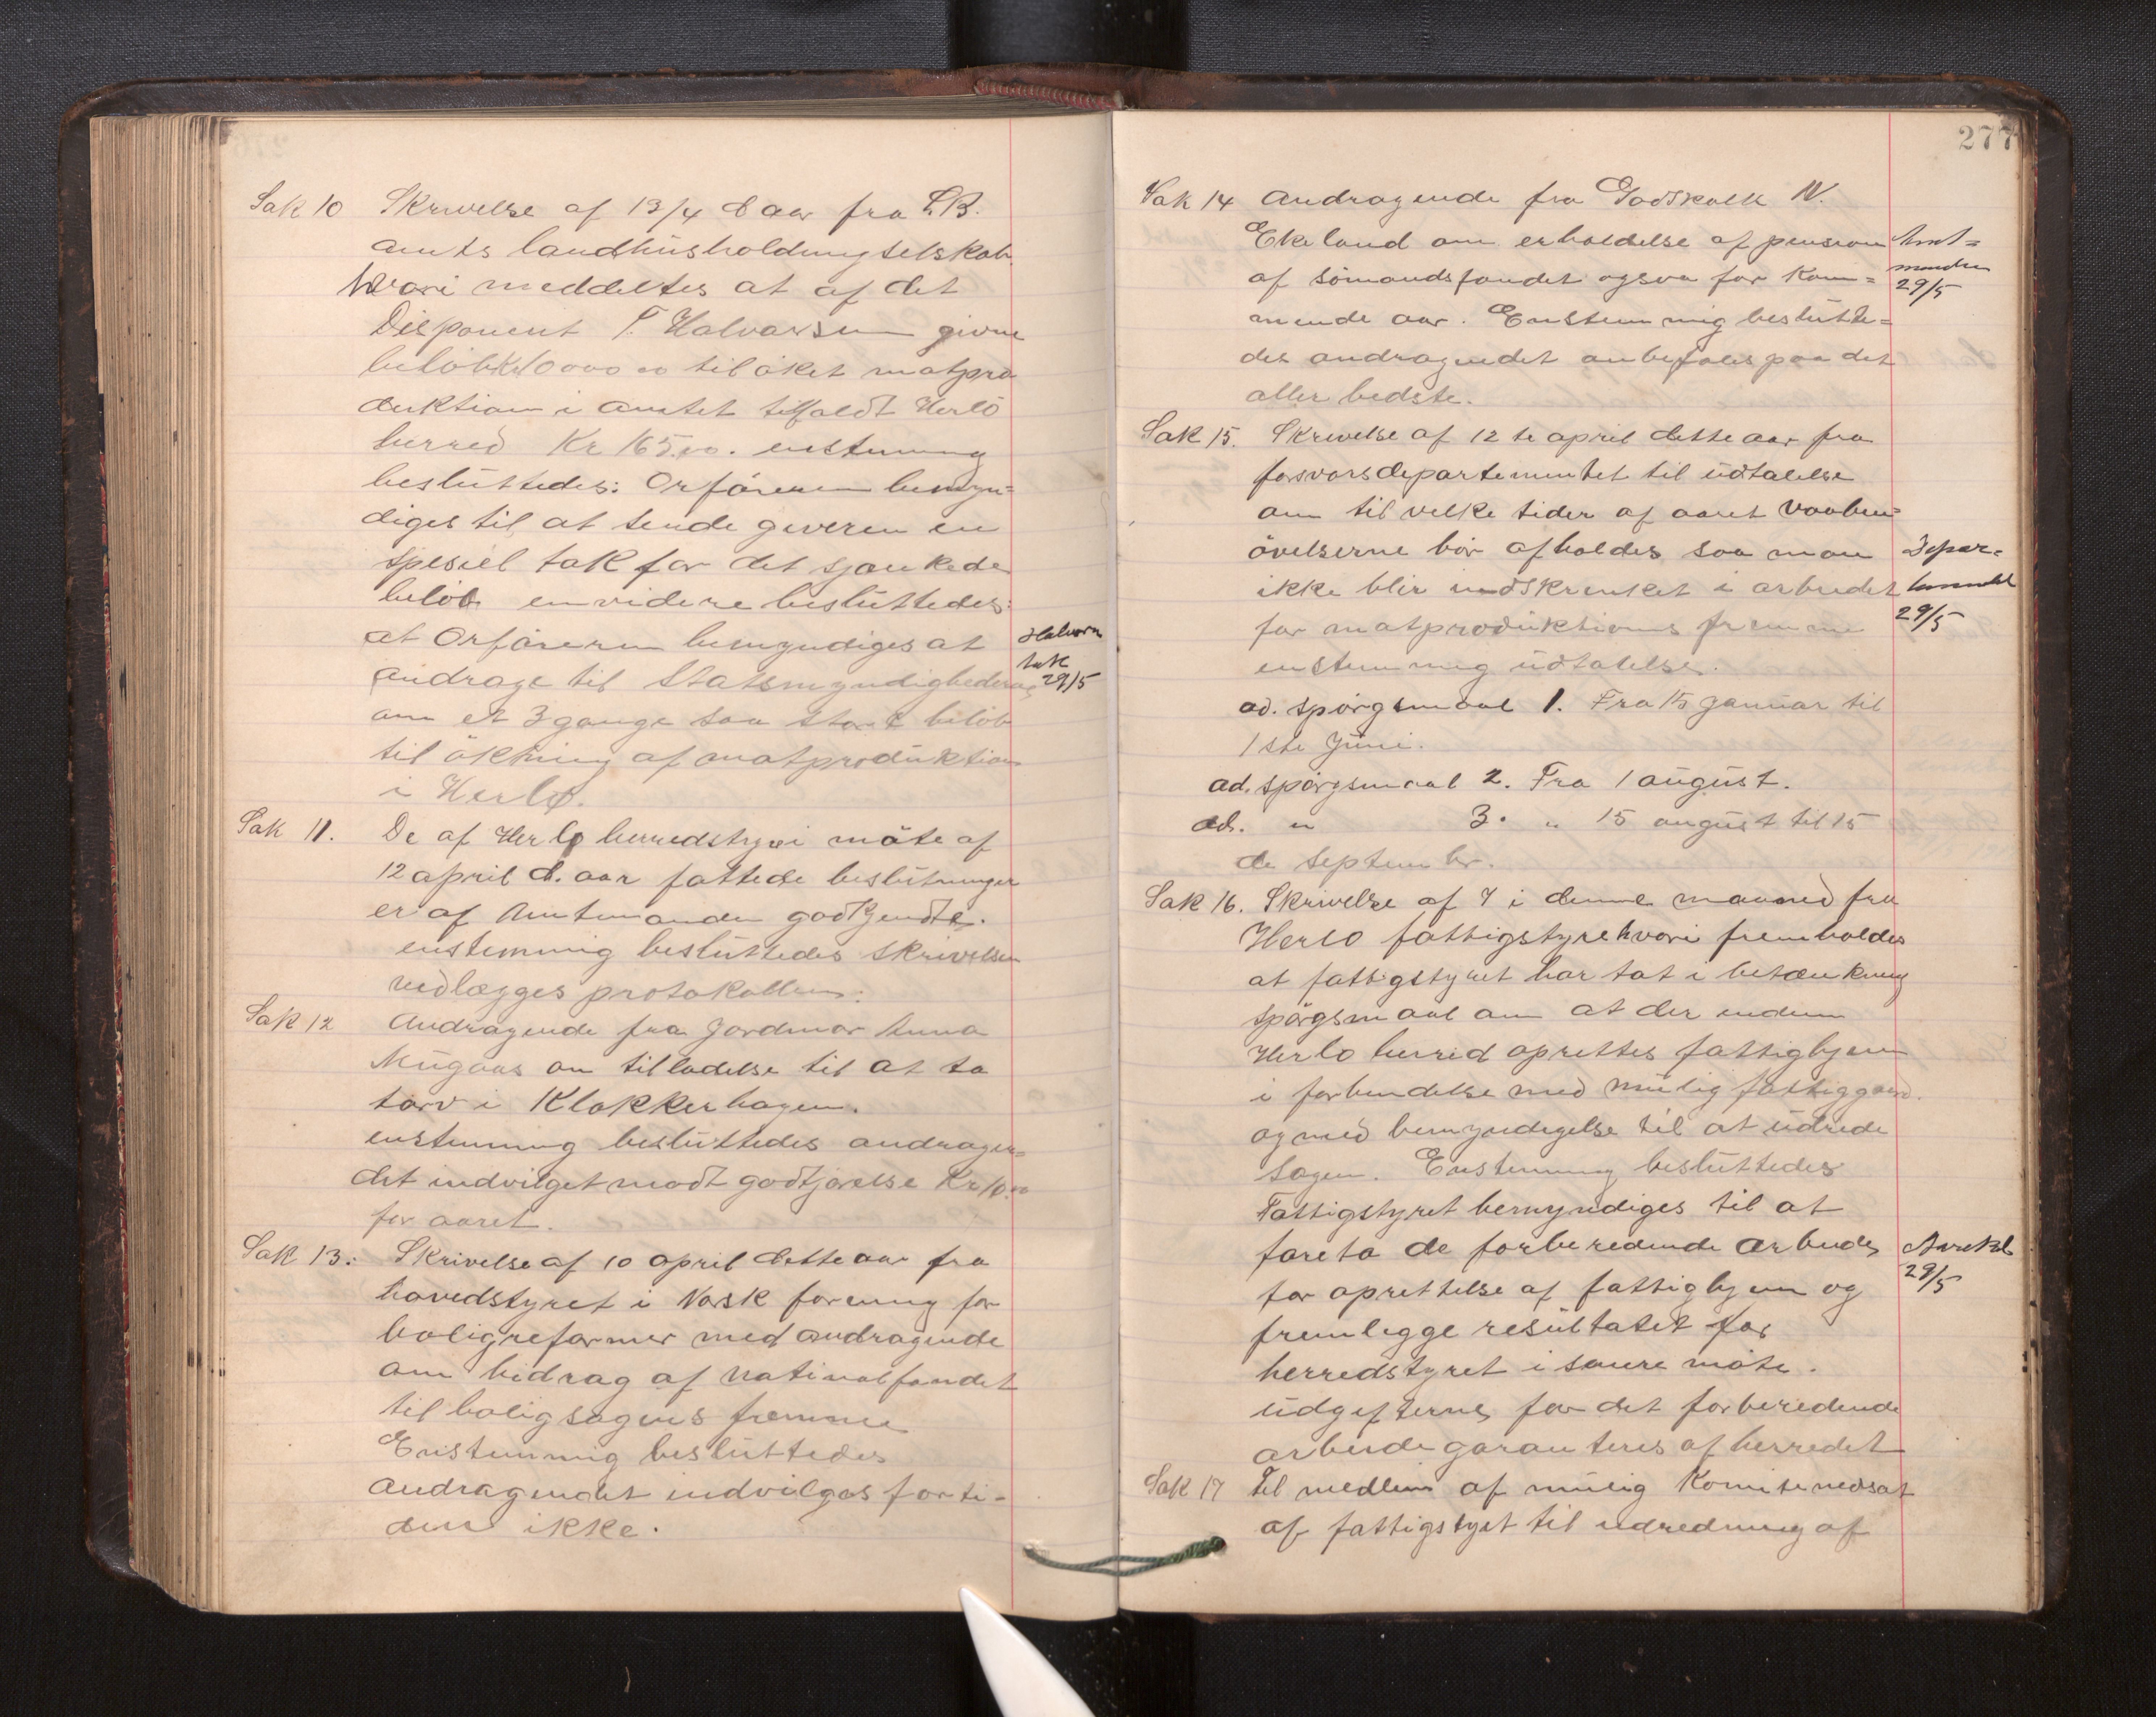 Sak 10 Skrivelse af 13/4 d aar fra S.B.
amts landhusholdningselskab
hvori meddeltes at af det
Disponent T. Halvorsen givne
beløb Kr 10000 00 til øket matpro
duktion i amtet tilfaldt Herlö
herred Kr 165.00. enstemmig
besluttedes: Orføreren bemyn=
diges til at sende giveren en
spesiel tak for det sjænkede
beløb envidere besluttedes:
at Orføreren bemyndiges at
Halvorsn
tak
29/5
andrage til Statsmyndighederne
om et 3 gange saa stort beløb
til økning af matproduktion
i Herlø.
Sak 11. De af Herlø herredstyre i møte af
12 april d. aar fattede beslutninger
er af Amtmanden godkjendte.
enstemmig besluttedes skrivelsen
vedlægges protokollen.
Sak 12 Andragende fra Jordmor Anna
Mugaas om tilladelse til at ta
torv i Klokkerhagen.
enstemmig besluttedes andragen=
det indvilget modt godtjørelse Kr 10.00
for aaret.
Sak 13: Skrivelse af 10 april dette aar fra
hovedstyret i Norsk forening for
boligreformer med andragende
om bidrag af nationalfondet
til boligsagens fremme
Enstemmig besluttedes
andragendet indvilges for ti-
den ikke.
277
Sak 14 Andragende fra Godskalk N.
Ekeland om erholdelse af pension
af sömandsfondet ogsaa for kom=
Amt=
manden
29/5
mende aar. Enstemmig beslutte=
des andragendet anbefales paa det
aller bedste.
Sak 15. Skrivelse af 12 te april dette aar fra
forsvarsdepartementet til udtalelse
om til velke tider af aaret vaaben=
øvelserne bør afholdes saa man
ikke blir indskrenket i arbeidet
Depar=
tementet
29/5
for matproduktions fremme
enstemmig udtalelse.
ad. spørgsmaal 1. Fra 15 januar til
1ste Juni.
ad. spørgsmaal 2. Fra 1 august.
ad. " 3. " 15 august til 15
de septembr.
Sak 16. Skrivelse af 7 i denne maaned fra
Herlo fattigstyre hvori fremholdes
at fattigstyret har tat i betænkning
spørgsmaal om at der inden
Herlo herred oprettes fattighjem
i forbindelse med mulig fattiggaard.
og med bemyndigelse til at udrede
sagen. Enstemmig besluttedes
Fattigstyret bemyndiges til at
foreta de forberedende arbeider
29/5
for oprettelse af fattighjem og
fremlegge resultatet for
herredstyret i senere møte.
udgifterne for det forberedende
arbeide garanteres af herredet
Sak 17 Til medlem af mulig Komite nedsat
af fattigstyret til udredning af